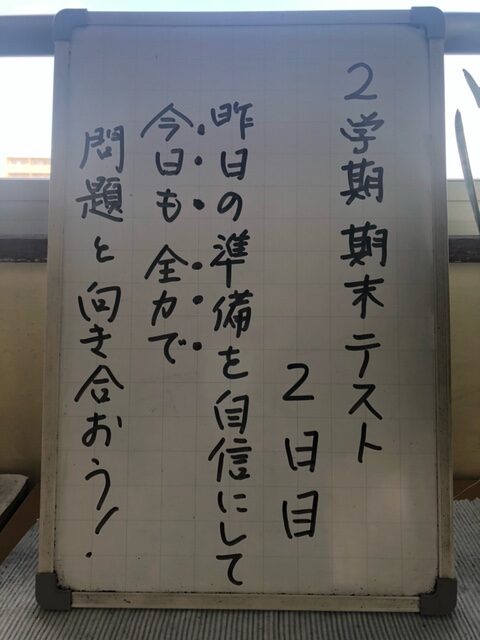 2学期 期末テスト
2日目
昨日の準備を自信にして
今日も 全力で
問題と向き合おう!